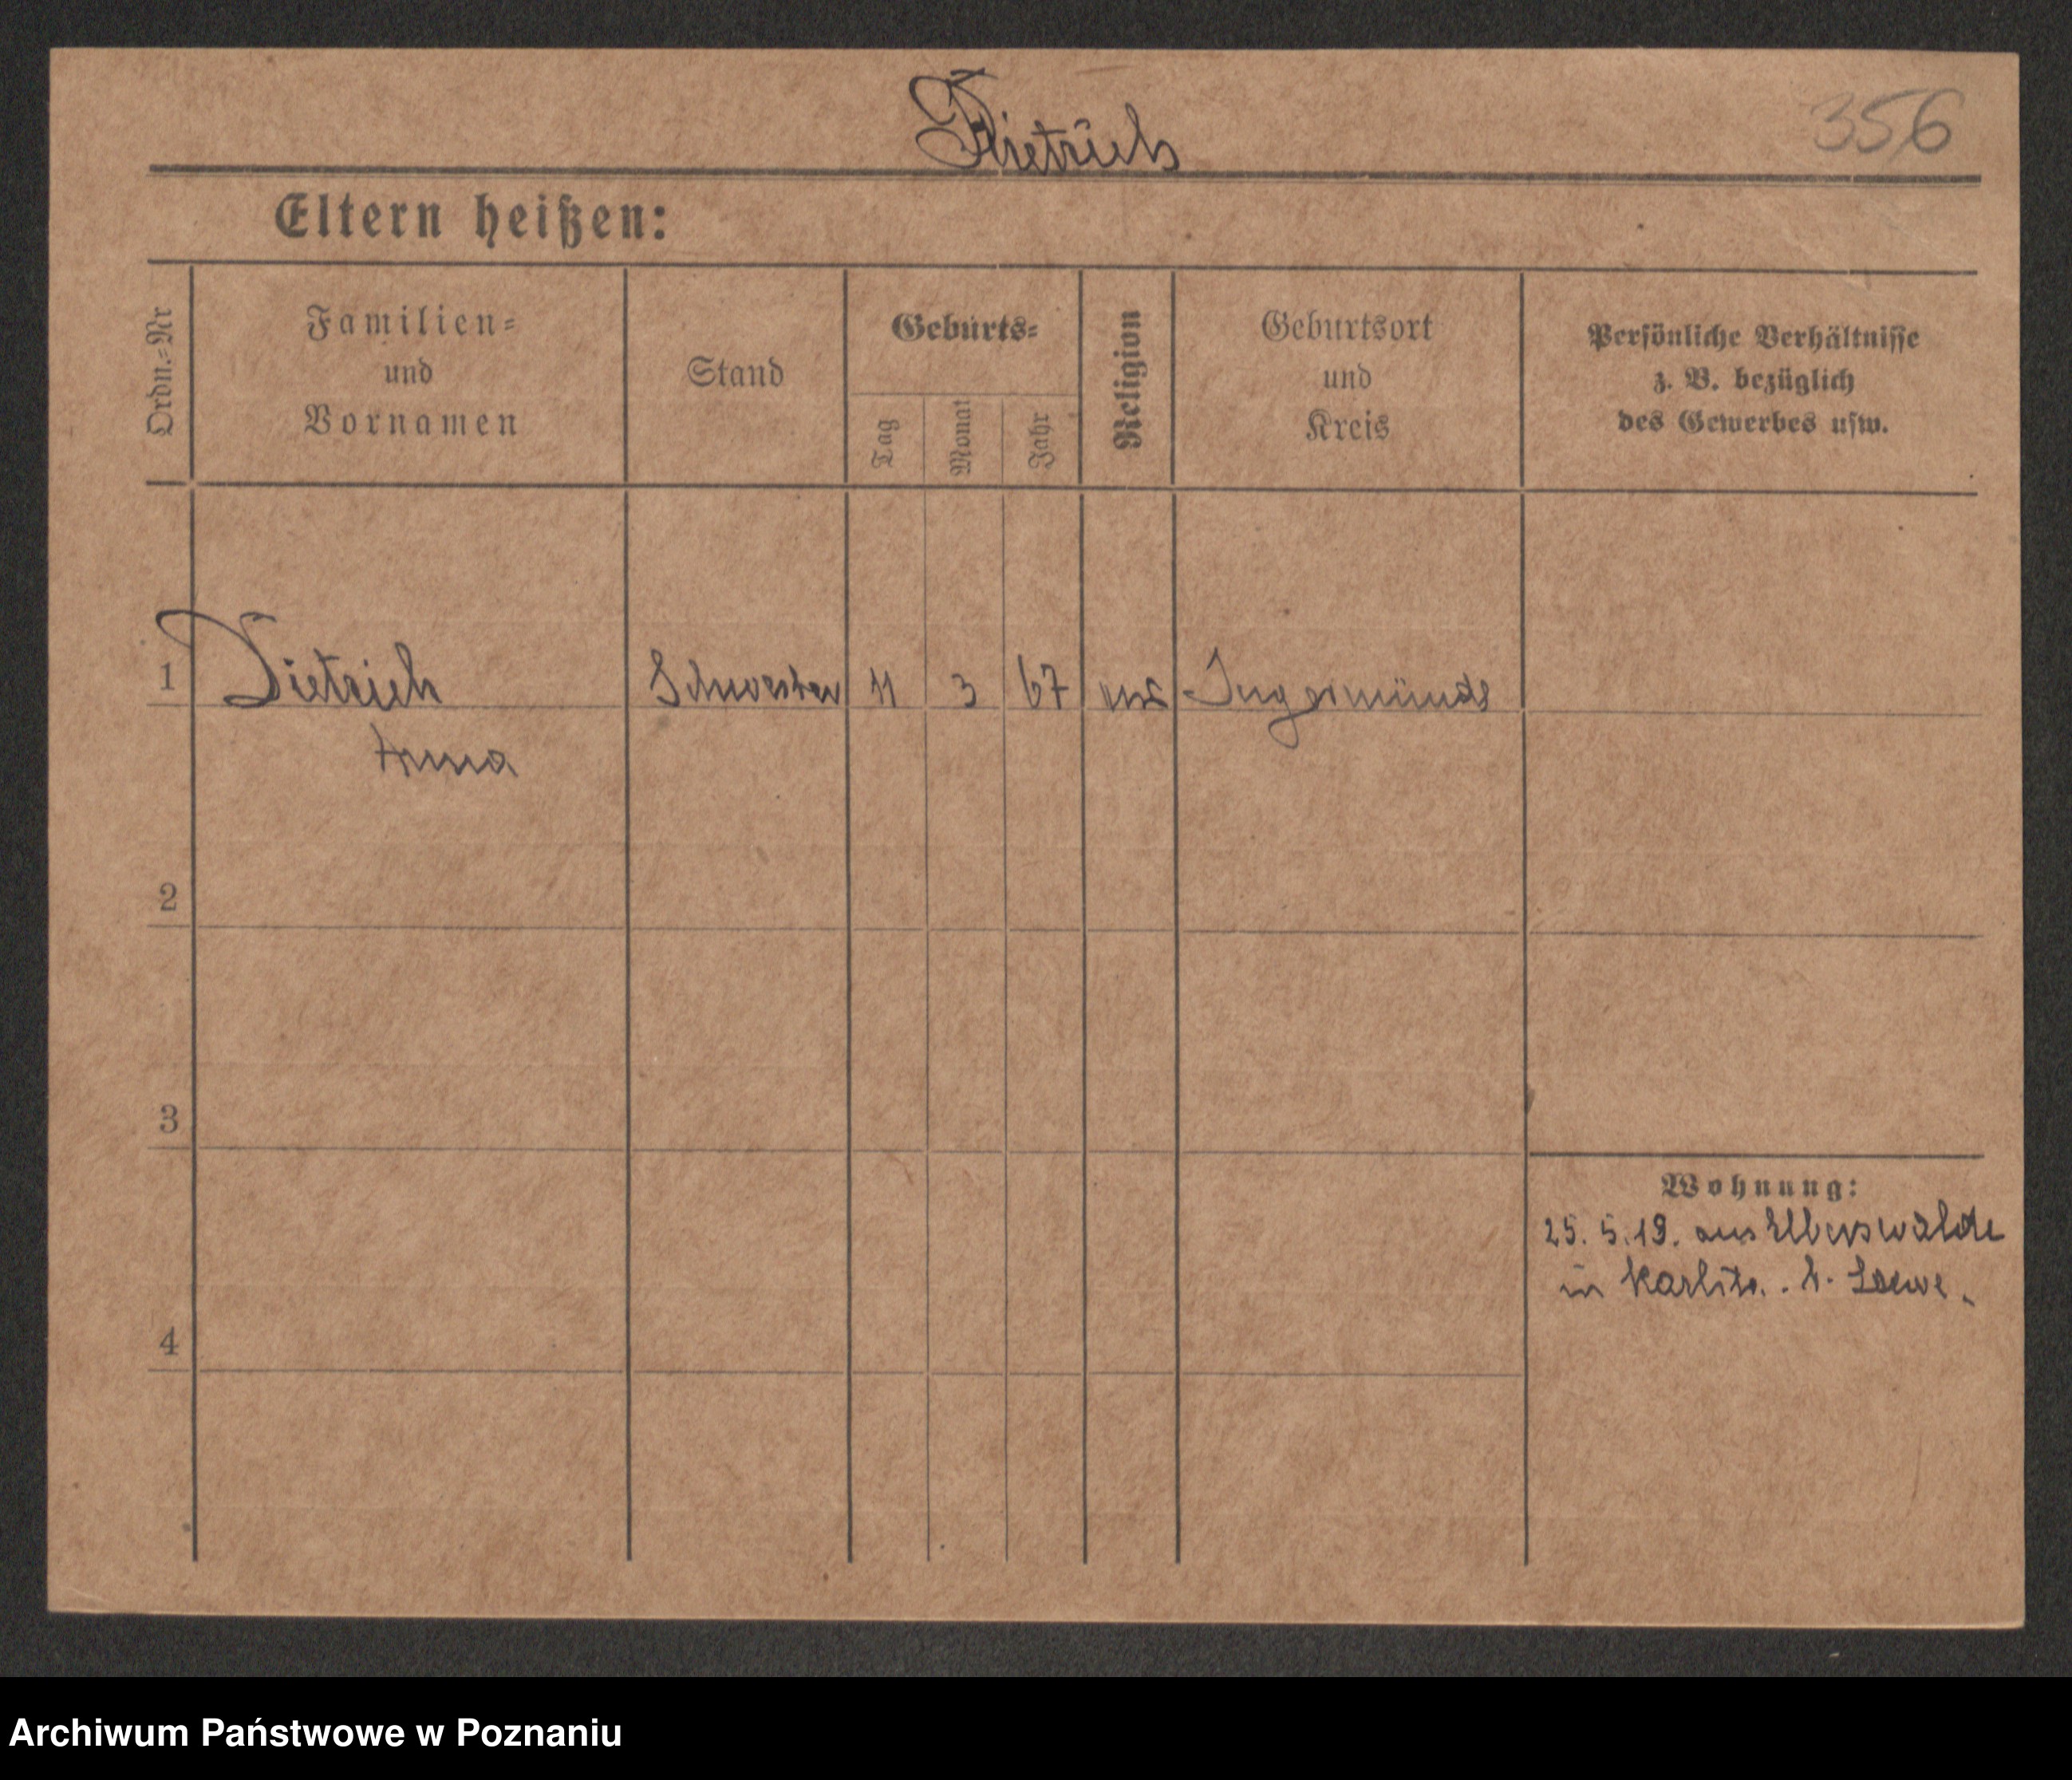 Dietrich
356
Eltern heißen:
Ordn.=Nr
Familien=
und
Vornamen
Stand
Geburts=
Tag
Monat
Jahr
Religion
Geburtsort
und
Kreis
Persönliche Verhältnisse
z. B. bezüglich
des Gewerbes usw.
1 Dietrich Schwester 11 3 67
Anna
2
3
4
Wohnung:
25. 5. 19. aus
in b. Loewe.
Archiwum Państwowe w Poznaniu